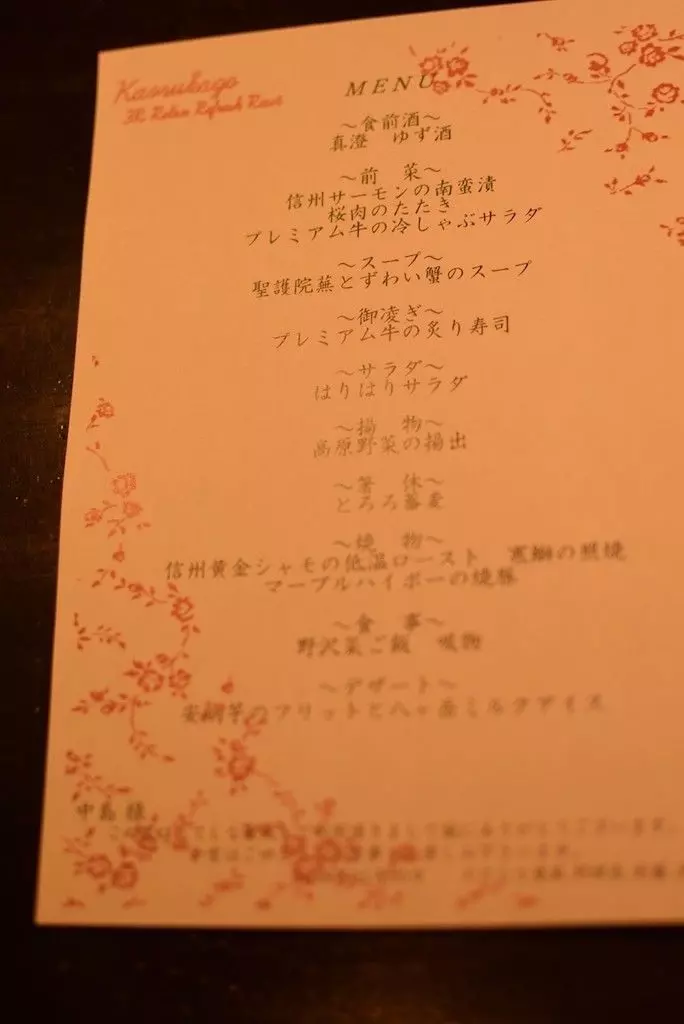 Kamukago
3R Relax Refresh Resort
MENU
～食前酒～
真澄　ゆず酒
～前　菜～
信州サーモンの南蛮漬
桜肉のたたき
プレミアム牛の冷しゃぶサラダ
～スープ～
聖護院蕪とずわい蟹のスープ
～御凌ぎ～
プレミアム牛の炙り寿司
～サラダ～
はりはりサラダ
～揚　物～
高原野菜の揚出
～箸　休～
とろろ蕎麦
～焼　物～
信州黄金シャモの低温ロースト　寒鰤の照焼
マーブルハイポーの焼豚
～食　事～
野沢菜ご飯　吸物
～デザート～
安納芋のフリットと八ヶ岳ミルクアイス
中島 様